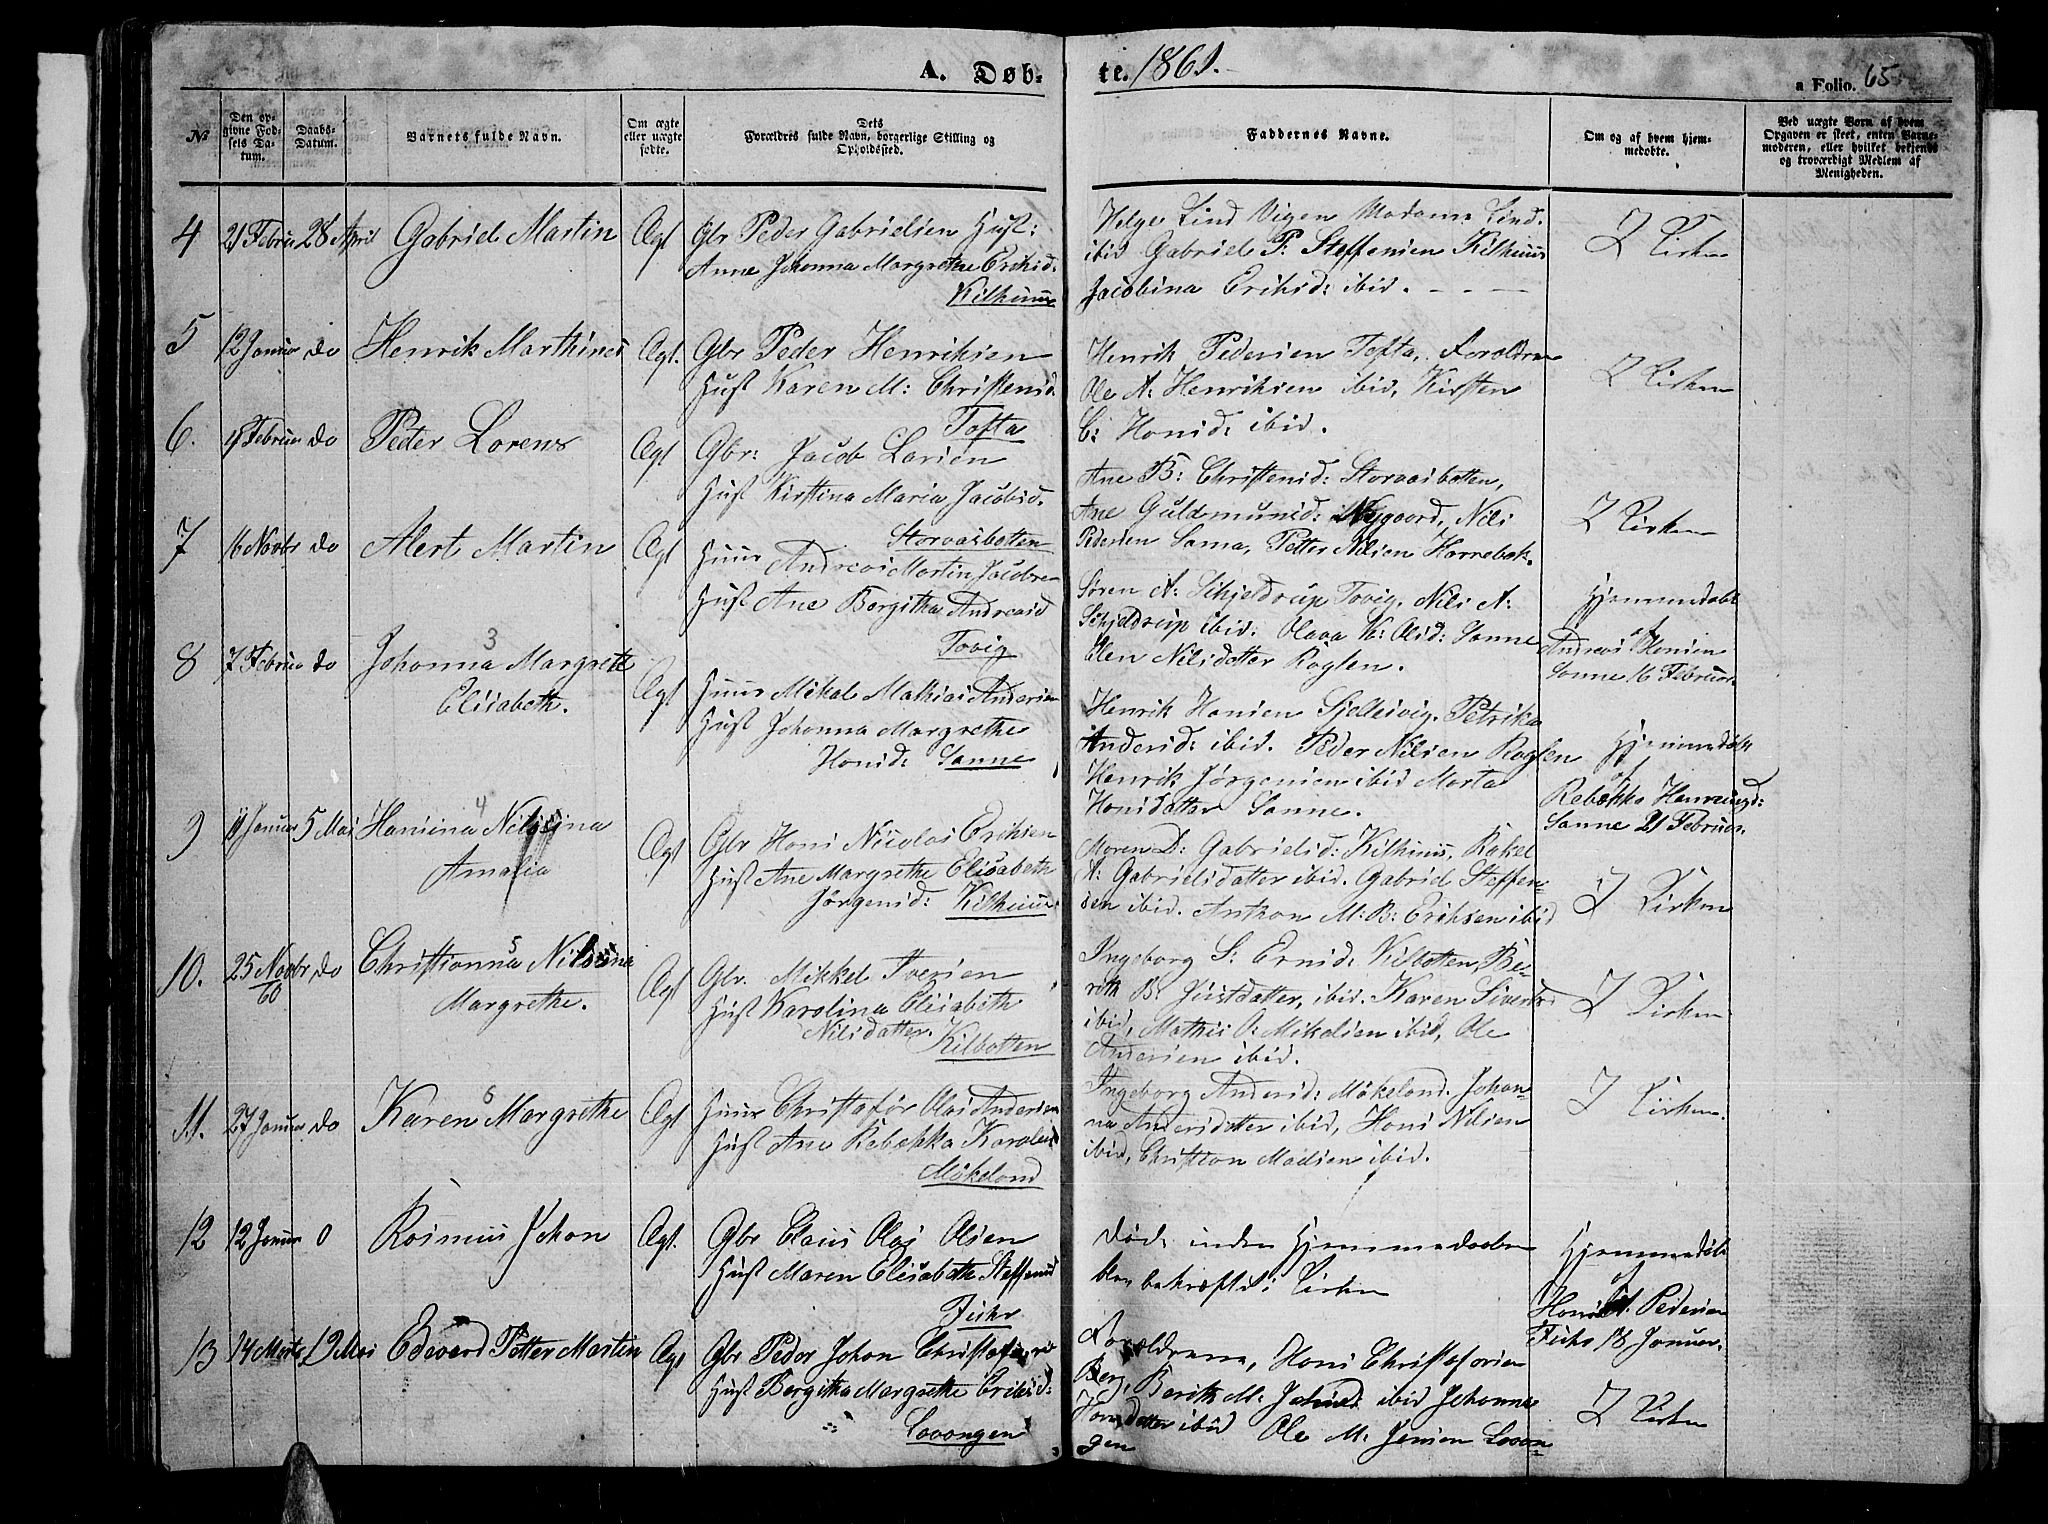 A. Døb-
te. 1861.
a Folio. 65
№
Den op-
givne Fød-
sels Da-
tum.
Daabs-
Datum.
Barnets fulde Navn.
Om ægte
eller uægte
fødte.
Dets
Forældres fulde Navn, borgerlige Stilling og
Opholdssted.
Faddernes Navne.
Om og af hvem hjem-
medøbte.
Ved uægte Børn af hvem
Opgaven er skeet, enten Barne-
moderen, eller hvilket bekjendt
og troværdigt Medlem af
Menigheden.
4 21 Februar 28 April Gabriel Martin Ægt
Gbr Peder Gabrielsen Hust:
Anne Johanna Margrethe Eriksd:
Kilhuus
Helge Lind Vigen Madame Lind
ibid Gabriel P: Steffensen Kilhuus
Jacobina Eriksd: ibid.
I Kirken
5 12 Januar do Henrik Marthines Ægt.
Gbr Peder Henriksen
Hust Karen M: Christensd.
Tofta
Henrik Pedersen Tofta, Forældrene
Ole A: Henriksen ibid, Kirsten
C: Hansd: ibid.
I Kirken
6. Februar do Peder Lorens Ægt
Gbr: Jacob Larsen
Hust Kirstina Maria Jacobsd.
Storvasbotten
Ane B: Christensd: Storvasbotten,
Ane Guldmunsd: Nygaard, Nils
Pedersen Sama, Petter Nilsen Horrebek.
I Kirken
7 16 Novbr do Alert Martin Ægt
Huus Andreas Martin Jacobsen
Hust Ane Bergitha Andreasd
Tovig
Søren A: Schjeldrup Tovig. Nils A:
Schjeldrup ibid: Olava K: Olsd: Sanne
Elen Nilsdatter Roglen.
Hjemmedøbt
af
Andreas Hansen
Sanne 16 Februar.
8 7 Februar do Johanna 3 Margrete
Elisabeth. Ægt
Huus Mikal Mathias Andersen
Hust Johanna Margrethe
Hansd: Sanne
Henrik Hansen Sjellesvig. Petrika
Andersd: ibid. Peder Nilsen Roglen
Henrik Jørgensen ibid Marta
Hansdatter Sanne.
Hjemmedøbt
af
Rebekka Henningsd:
Sanne 21 Februar.
9 11 Januar 5 Mai Hansina 4 Nilsina
Amalia Ægt
Gbr Hans Nicolai Eriksen
Hust Ane Margrethe Elisabeth
Jørgensd: Kilhuus
Maren D: Gabrielsd: Kilhuus, Rakel
A: Gabrielsdatter ibid. Gabriel Steffen-
sen ibid. Anthon M: B: Eriksen ibid
I Kirken
10. 25 Novbr/60 do Christianna 5 Nilsina
Margrethe. Ægt
Gbr. Mikkel Iversen
Hust Karolina Elisabeth
Nilsdatter. Kilbotten
Ingeborg S: Ernsd: Kilbotten, Be-
rith B: Justdatter, ibid. Karen Sivertsd
ibid, Mathis O: Mikelsen ibid, Ole
Andersen ibid.
I Kirken
11. 27 Januar do Karen 6 Margrethe Ægt
Huus Christoför Olai Andersen
Hust Ane Rebekka Karolisd
Møkeland
Ingeborg Andersd: Møkeland. Johan-
na Andersdatter ibid, Hans Nilsen
ibid, Christian Madsen ibid.
I Kirken.
12 12 Januar 0 Rasmus Johan Ægt.
Gbr Claus Olai Olsen
Hust Maren Elisabeth Steffensd
Fiske
Død inden Hjemmedaaben
blev bekræftet i Kirken
Hjemmedøbt
af
Hans A. Pedersen
Fiske 18 Januar
13 14 Marts 12 Mai Edevard Petter Martin Ægt
Gbr Peder Johan Christofersen
Hust Bergitha Margrethe Eriksd:
Lovangen
Forældrene, Hans Christofersen
Berg, Berith M: ibid Johanna
Hansdatter ibid Ole M: Jensen Lovan-
gen
I Kirken